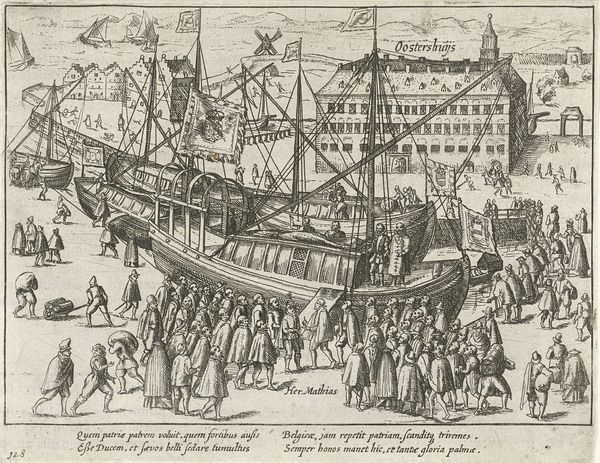 Oostershuijs
Her Mathias
Quem patriæ patrem voluit, quem fortibus ausis
Eße Ducem, et sævos belli sedare tumultus
Belgicæ, jam repetit patriam, scanditq triremes.
Semper honos manet hic, et tantæ gloria palmæ.
128